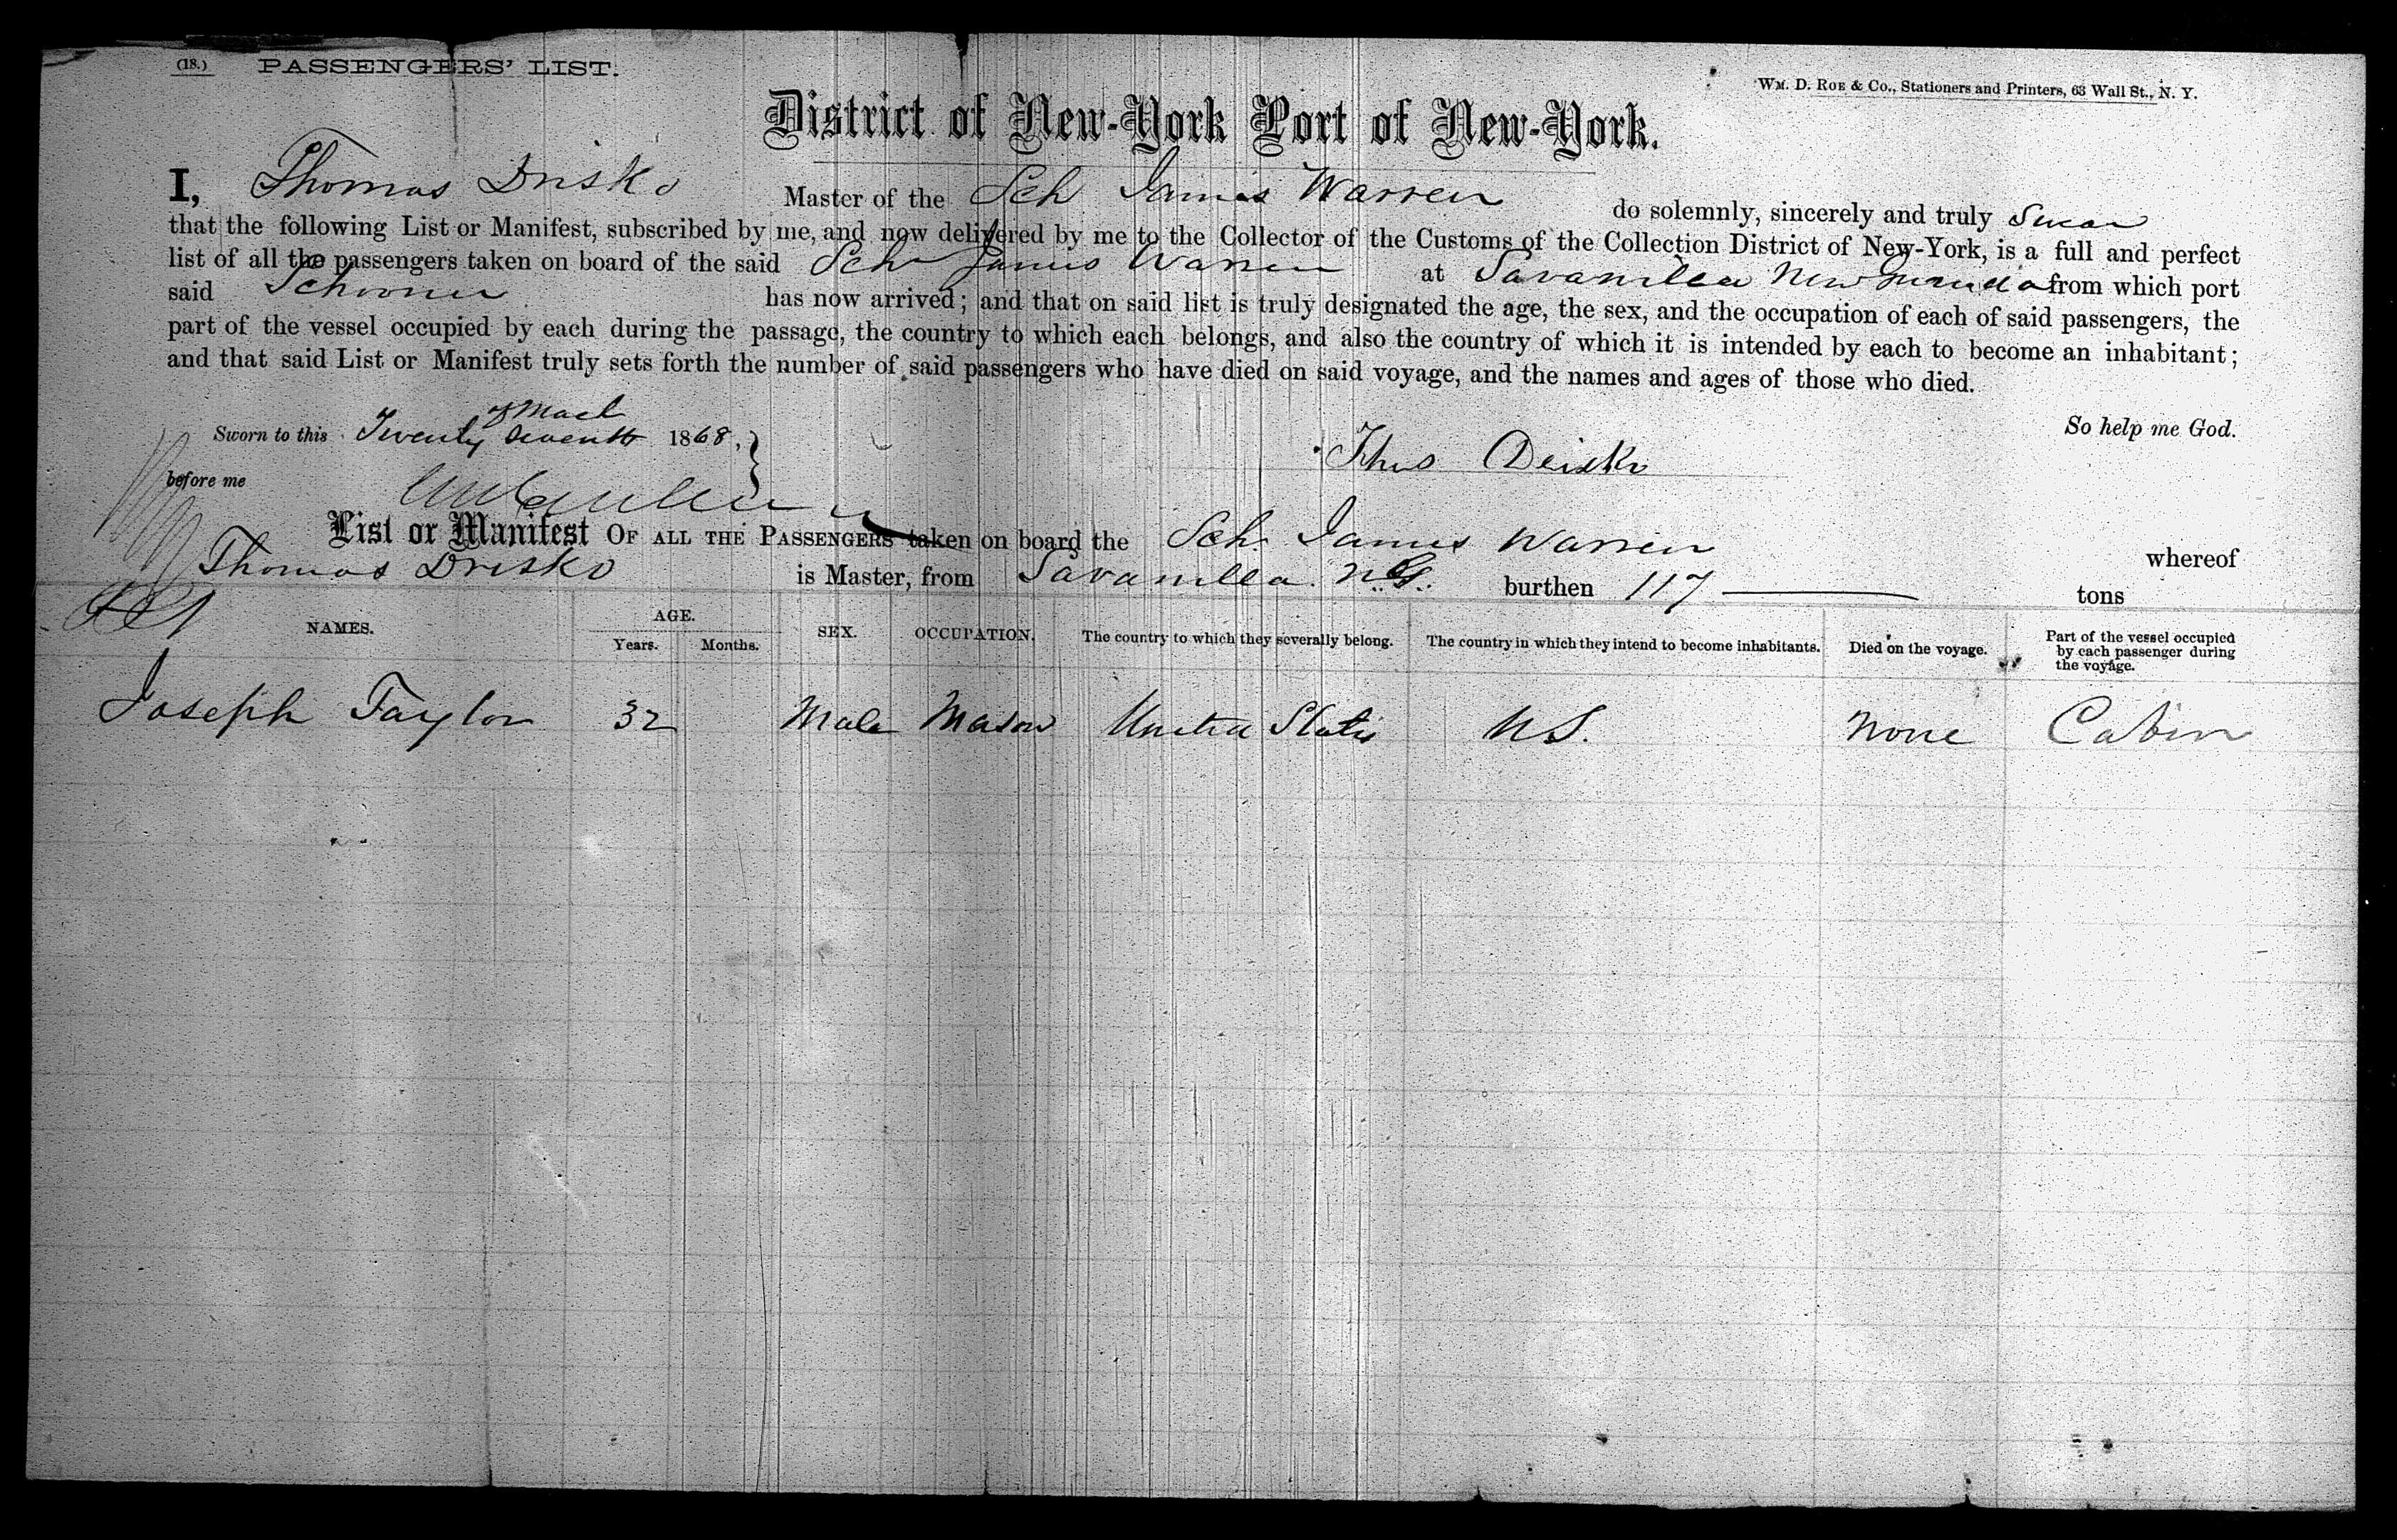 (18.) PASSENGERS' LIST.
WM. D. ROE & CO., Stationers and Printers, 63 Wall St., N. Y.
District of New-York Port of New-York.
I, Thomas Drisko Master of the Sch James Warren do solemnly, sincerely and truly Swear
that the following List or Manifest, subscribed by me, and now delivered by me to the Collector of the Customs of the Collection District of New-York, is a full and perfect
list of all the passengers taken on board of the said Schr James Warren at Savanilla New Granada from which port
said Schooner has now arrived; and that on said list is truly designated the age, the sex, and the occupation of each of said passengers, the
part of the vessel occupied by each during the passage, the country to which each belongs, and also the country of which it is intended by each to become an inhabitant;
and that said List or Manifest truly sets forth the number of said passengers who have died on said voyage, and the names and ages of those who died.
So help me God.
Sworn to this Twenty Seventh of March 1868,
Thos Drisko
before me
List or Manifest OF ALL THE PASSENGERS taken on board the Sch. James Warren whereof
Thomas Drisko is Master, from Savanilla N.G. burthen 117 tons
NAMES. AGE. Years. Months. SEX. OCCUPATION. The country to which they severally belong. The country in which they intend to become inhabitants. Died on the voyage. Part of the vessel occupied by each passenger during the voyage.
Joseph Taylor 32 Male Mason United States U S. None Cabin